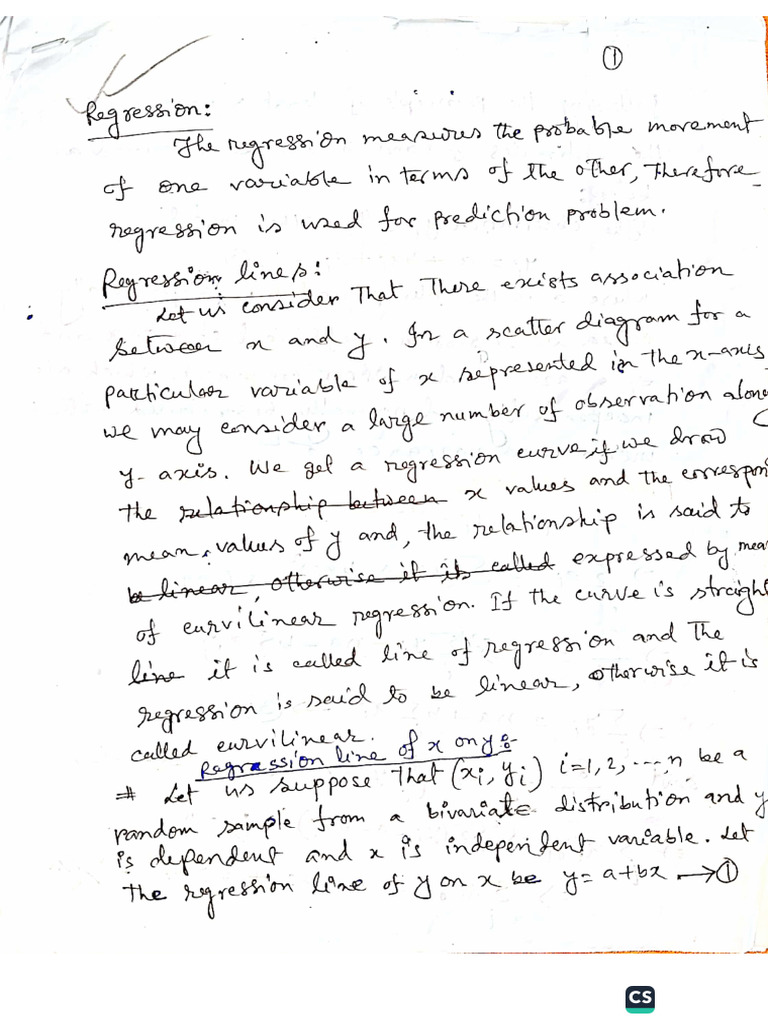 ①
Regression:
The regression measures the probable movement
of one variable in terms of the other, therefore
regression is used for prediction problem.
Regression lines:
Let us consider that there exists association
between x and y. In a scatter diagram for a
particular variable of x represented in the x-axis
we may consider a large number of observation along
y-axis. We get a regression curve if we draw
the relationship between x values and the correspon
mean values of y and, the relationship is said to
be linear, otherwise it is called expressed by mea
of curvilinear regression. If the curve is straight
line it is called line of regression and the
regression is said to be linear, otherwise it is
called curvilinear.
Regression line of x on y:-
# Let us suppose that (xi, yi) i=1, 2, ..., n be a
random sample from a bivariate distribution and y
is dependent and x is independent variable. Let
the regression line of y on x be y = a+bx →①
CS